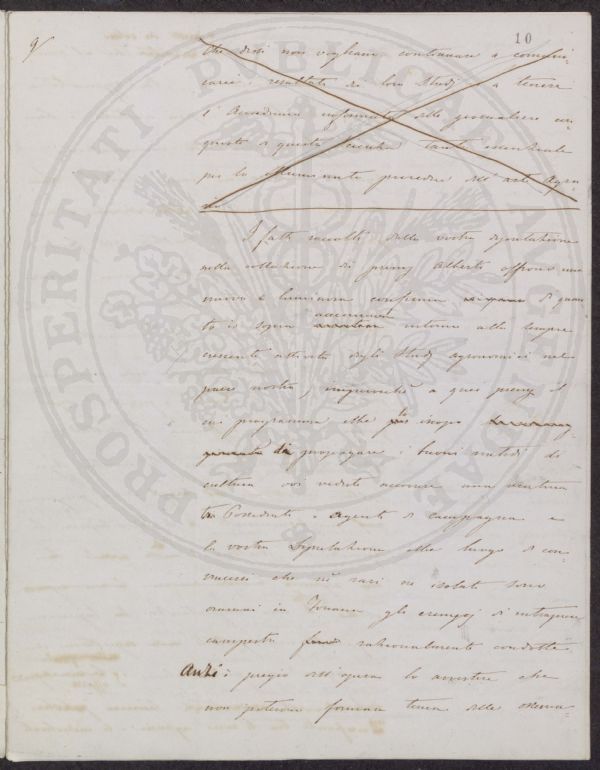 9/ 10
che dessi non vogliano continuare a comuni-
carci i resultati de loro studj a tenere
l'Accademia informata delle giornaliere con-
quiste di questa scienza tanto essenziale
per lo illuminato procedere dell'arte Agra-
ria.
I fatti raccolti dalla vostra deputazione
nella collazione di premj Alberti offrono una
nuova e luminosa conferma di quan-
to io sopra accennava intorno alla sempre
crescente attività degli studj agronomici nel
paese nostro, imperocchè a quei premj il
cui programma ebbe per iscopo
di propagare i buoni metodi di
cultura voi vedeste accorrere una ventina
tra Possidenti e agenti di campagna e
la vostra Deputazione ebbe luogo di con-
vincersi che nè rari nè isolati sono
oramai in Toscana gli esempj di intraprese
campestri razionalmente condotte.
Anzi è pregio dell'opera lo avvertire che
non potevano formar tema delle osserva-